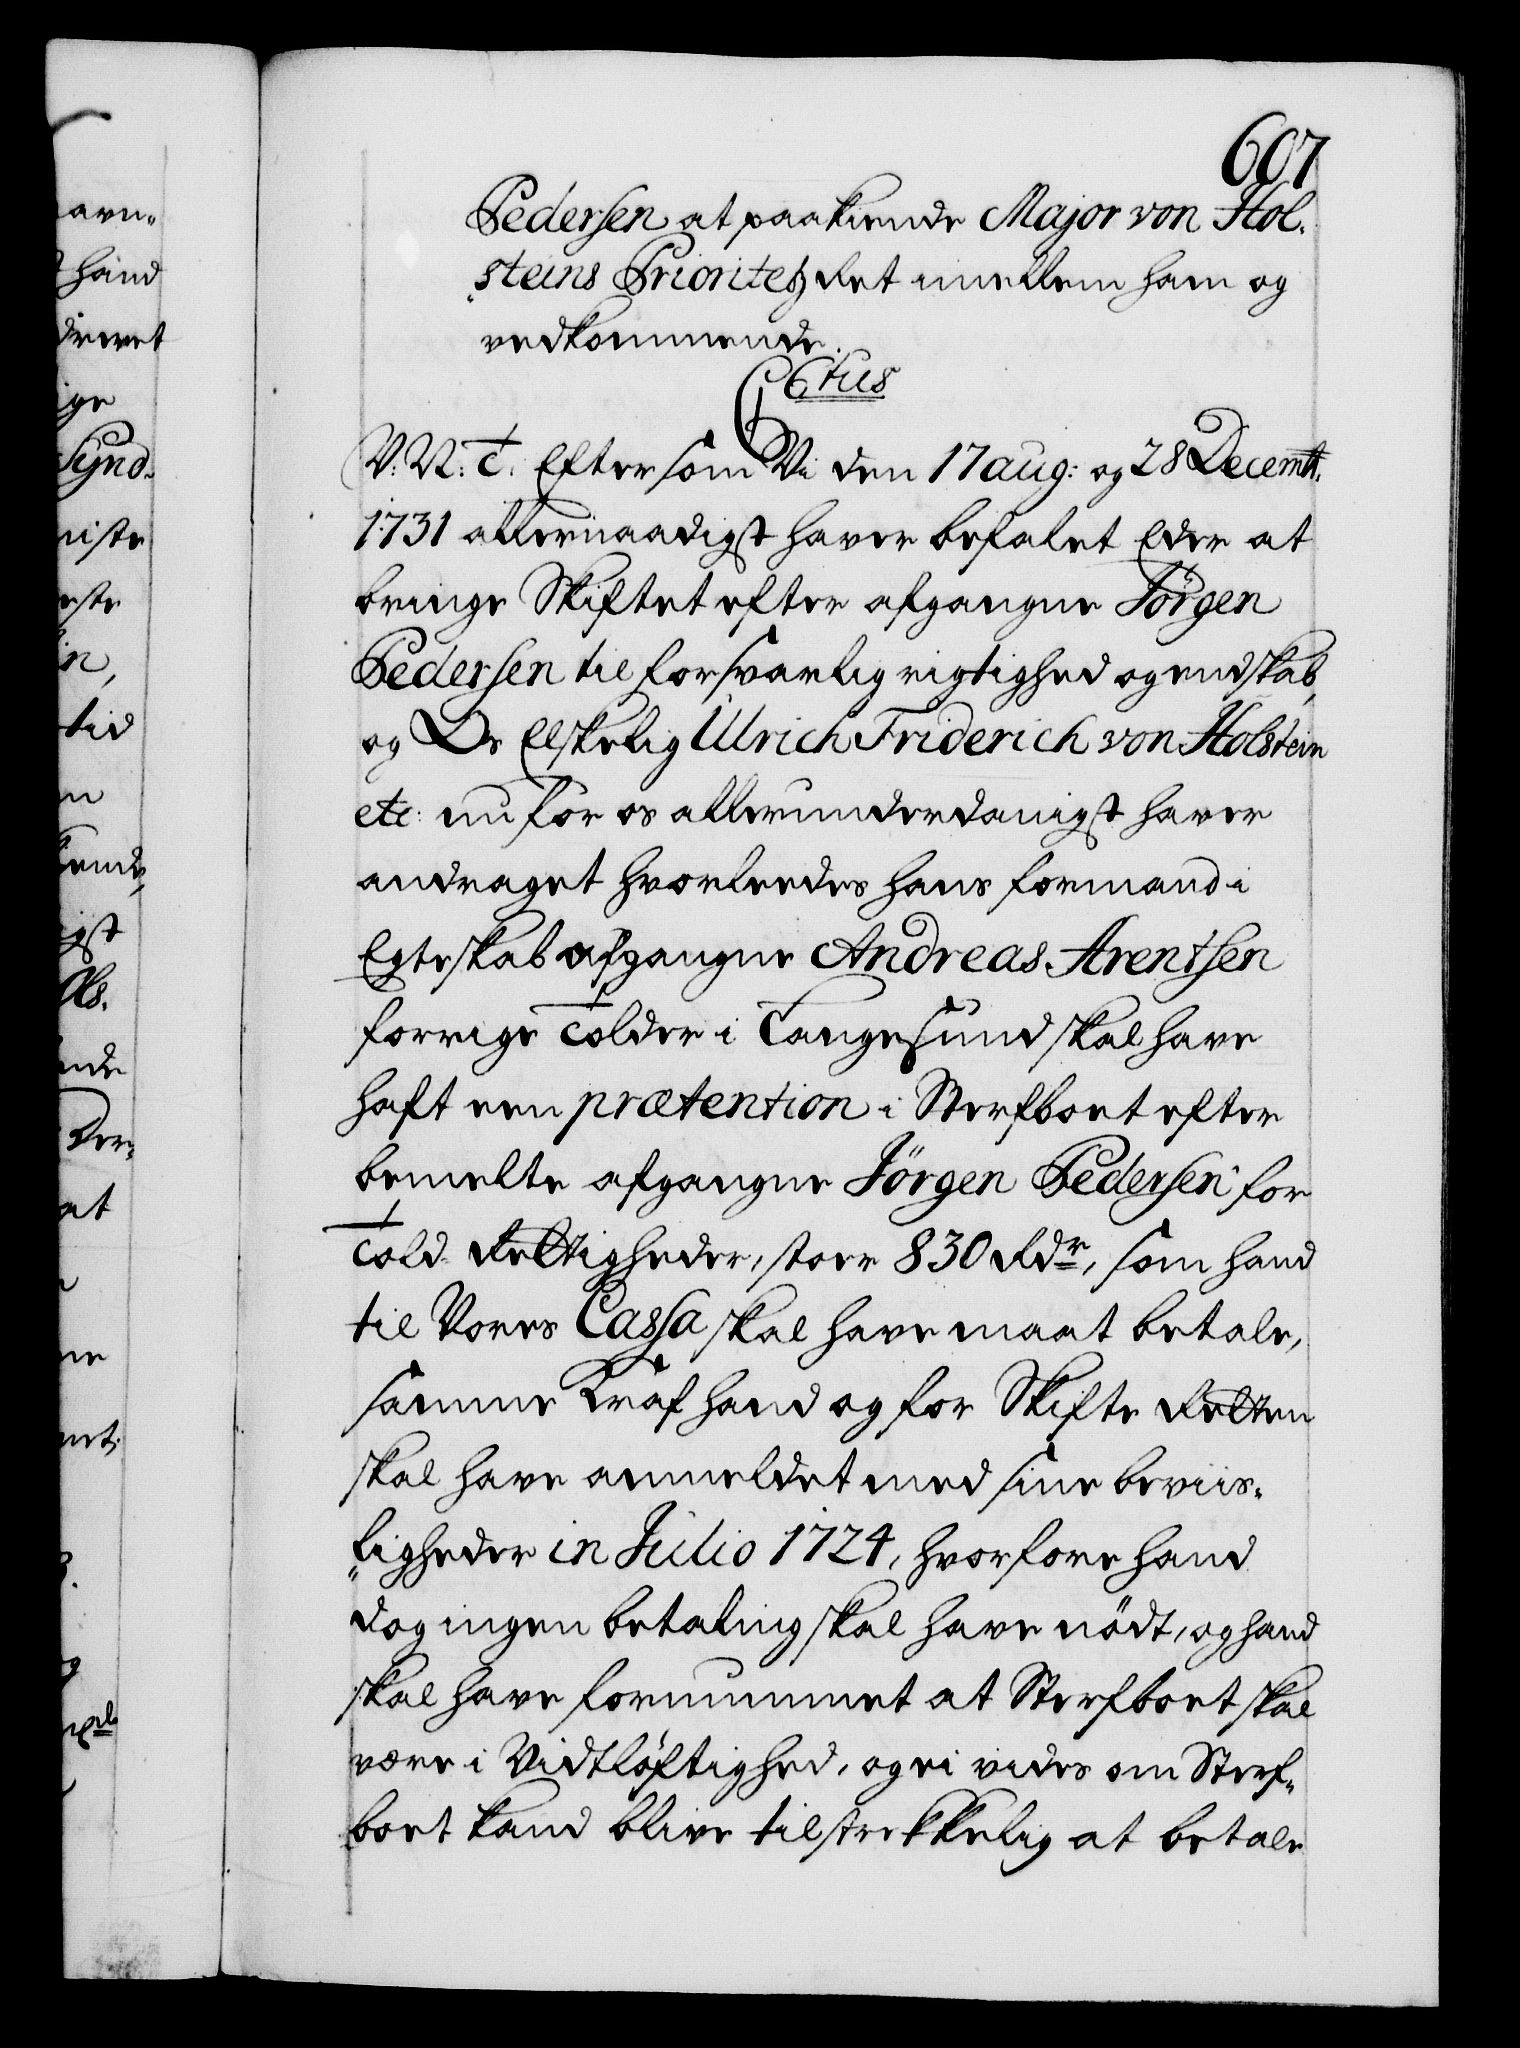 607
Pedersen at paakiende Major von Hol-
steins Prioritetz Ret imellem ham og
vedkommende.
C6tus
V: V: T: Eftersom Vi den 17 aug: og 28 Decembr.
1731 allernaadigst haver befalet Eder at
bringe Skiftet efter afgangne Jörgen
Pedersen til forsvarlig rigtighed og endskab,
og Os Elskelig Ulrich Friderich von Holstein
etc: nu for os allerunderdanigst haver
andraget hvorleedes hans formand i
Egteskab afgangne Andreas Arentsen
forrige Tolder i Langesund skal have
haft een prætention i Sterfboet efter
bemelte afgangne Jörgen Pedersen for
Told Rettigheder, stoer 830 Rdr, som hand
til Vores Cassa skal have maat betale,
samme Kraf hand og for Skifte Retten
skal have anmeldet med sine beviis-
ligheder in Julio 1724, hvorfore hand
dog ingen betaling skal have nödt, og hand
skal have fornummet at Sterfboet skal
være i Vidtløftighed, og ei vides om Sterf-
boet kand blive tilstrekkelig at betale
avn-
hånd
drevet
ige
Synd-
niste
este
in,
tid
n
kende,
igst
Ols.
nde
Der-
at
ne
net.
g